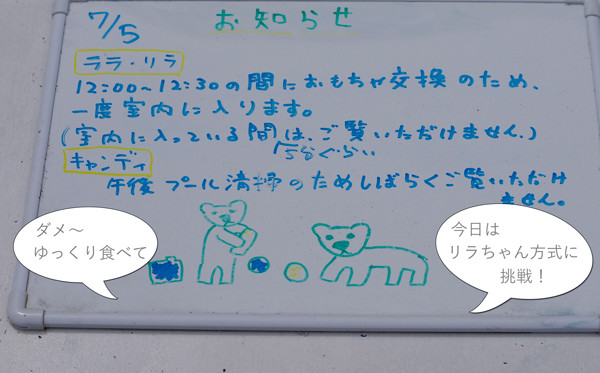 7/5 お知らせ
ララ・リラ
12:00〜12:30の間におもちゃ交換のため、
一度室内に入ります。
(室内に入っている間は、ご覧いただけません。)
15分ぐらい
キャンディ
午後 プール清掃のためしばらくご覧いただけ
ません。
ダメ〜
ゆっくり食べて
今日は
リラちゃん方式に
挑戦！